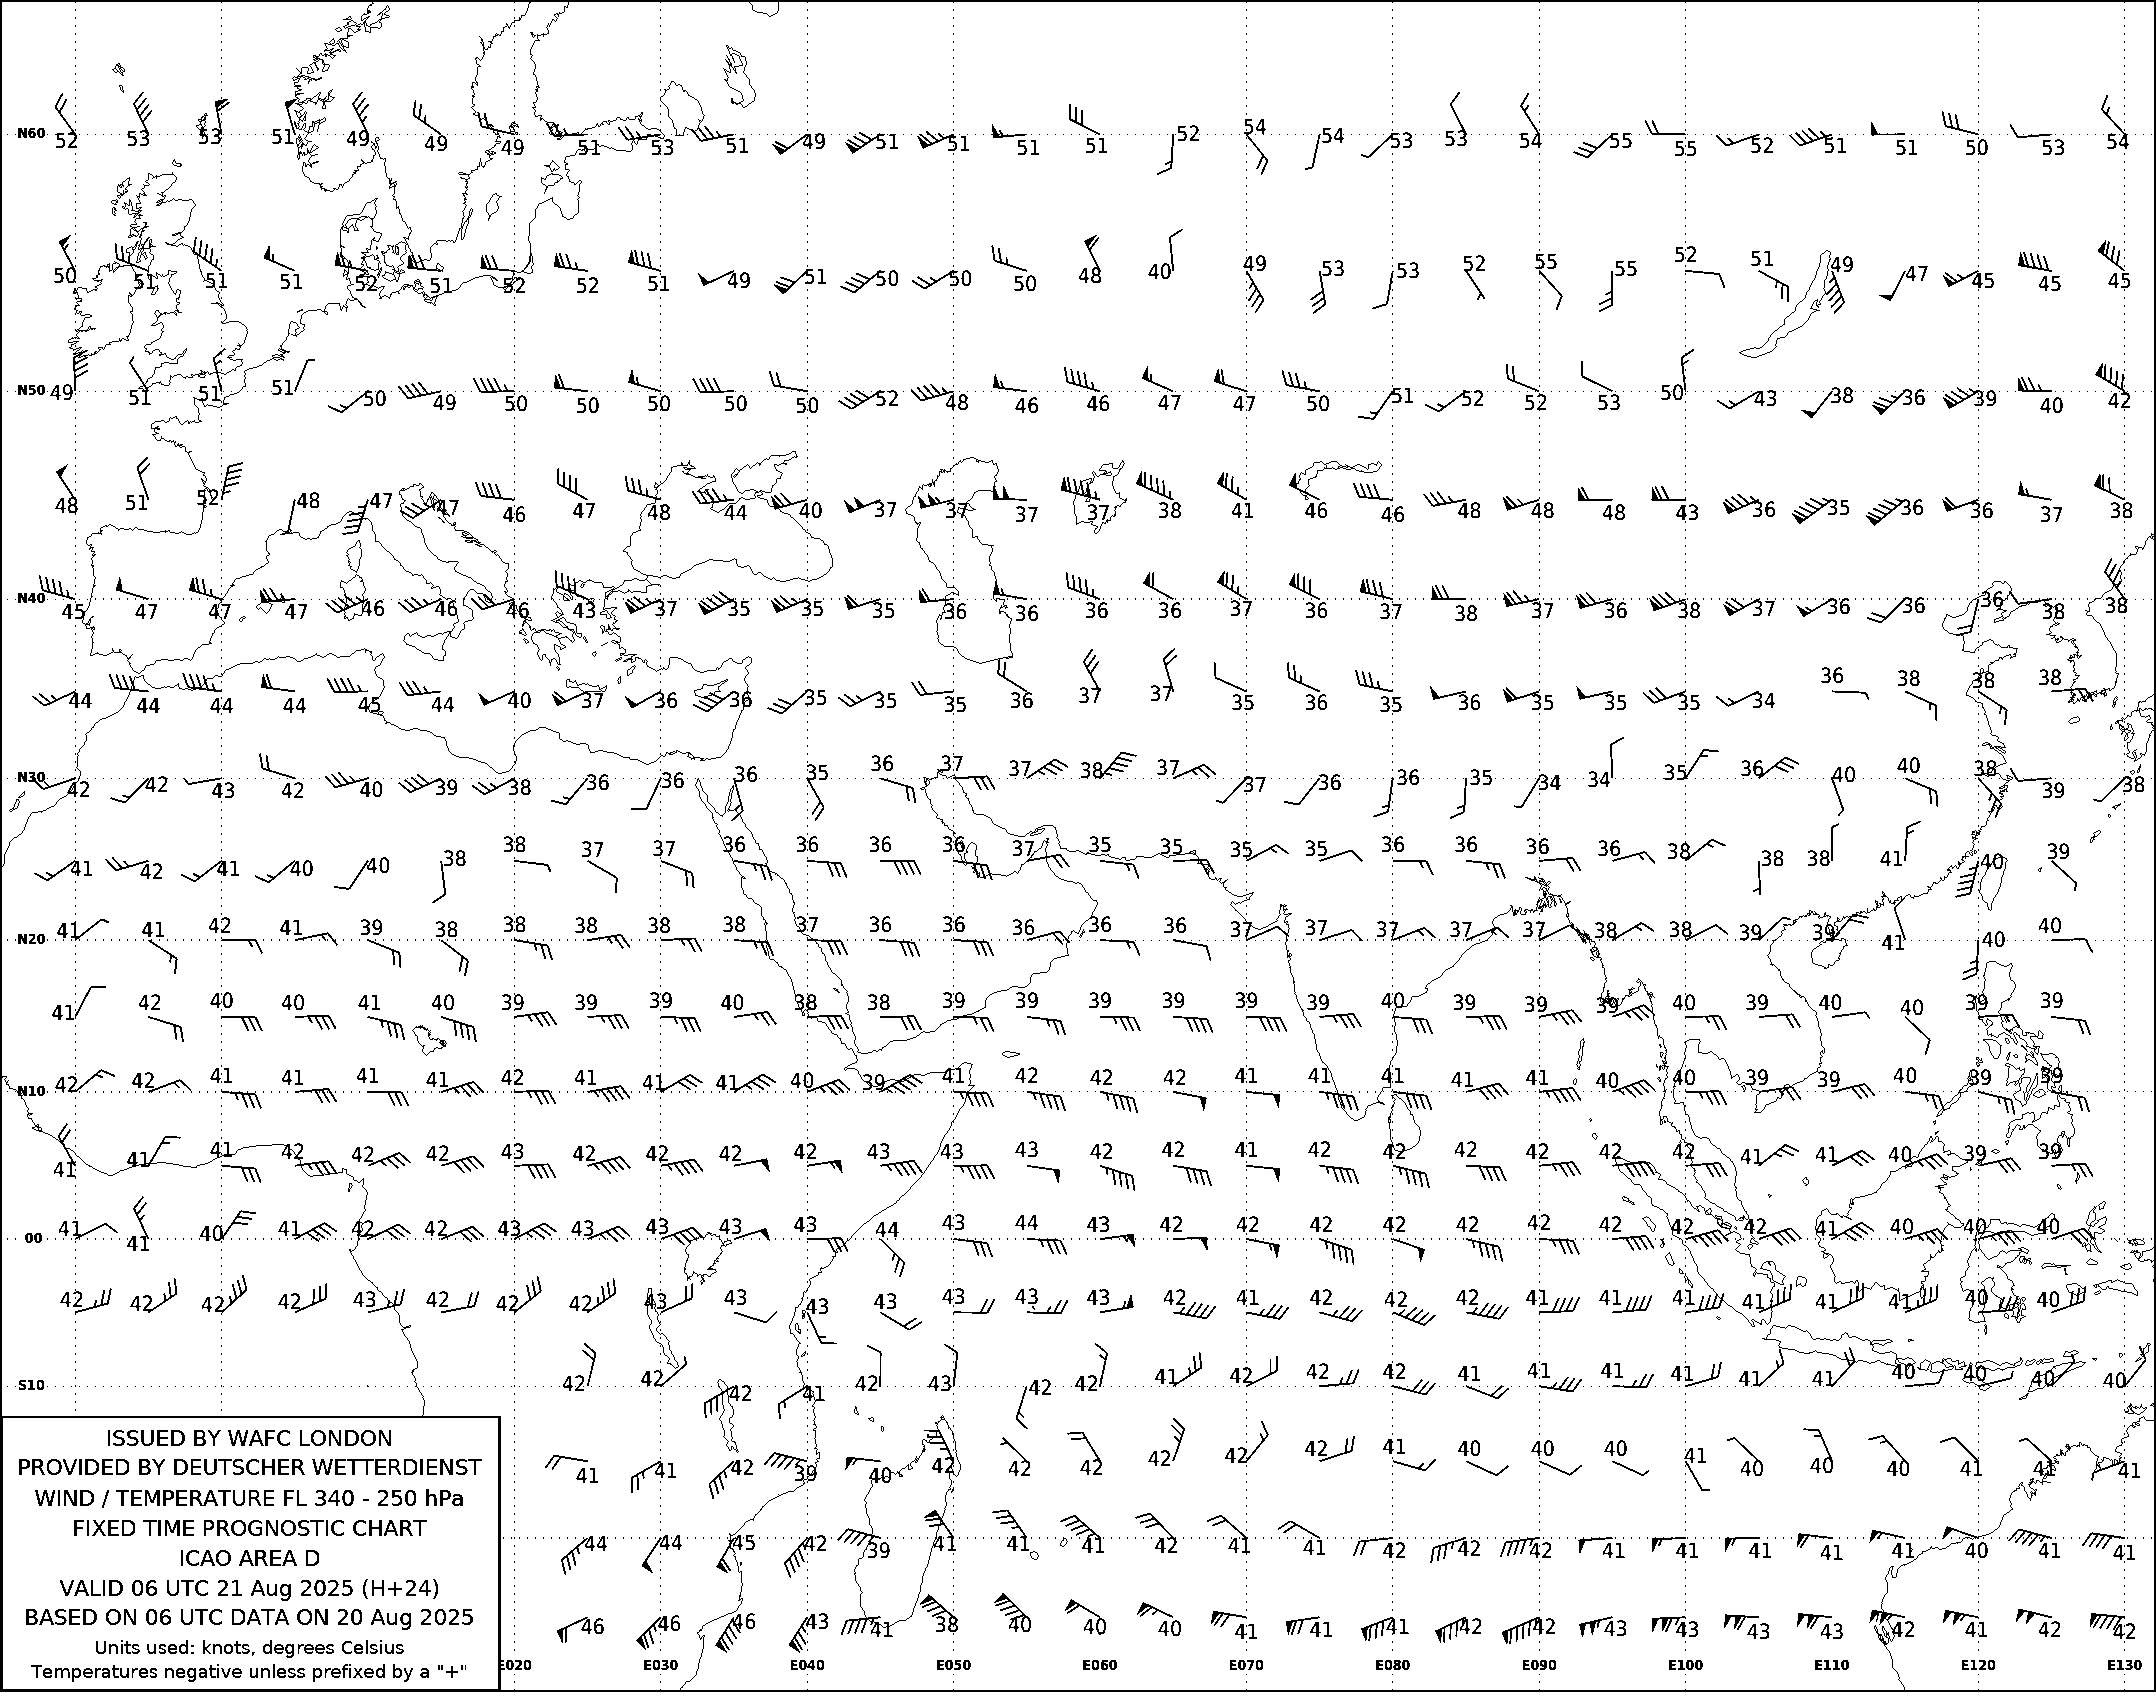 N60 52 53 53 51 49 49 49 51 53 51 49 51 51 51 51 52 54 54 53 53 54 55 55 52 51 51 50 53 54
50 51 51 51 52 51 52 52 51 49 51 50 50 50 48 40 49 53 53 52 55 55 52 51 49 47 45 45 45
N50 49 51 51 51 50 49 50 50 50 50 50 52 48 46 46 47 47 50 51 52 52 53 50 43 38 36 39 40 42
48 51 52 48 47 47 46 47 48 44 40 37 37 37 37 38 41 46 46 48 48 48 43 36 35 36 36 37 38
N40 45 47 47 47 46 46 46 43 37 35 35 35 36 36 36 36 37 36 37 38 37 36 38 37 36 36 36 38 38
44 44 44 44 45 44 40 37 36 36 35 35 35 36 37 37 35 36 35 36 35 35 35 34 36 38 38 38
N30 42 42 43 42 40 39 38 36 36 36 35 36 37 37 38 37 37 36 36 35 34 34 35 36 40 40 38 39 38
41 42 41 40 40 38 38 37 37 36 36 36 36 37 35 35 35 35 36 36 36 36 38 38 38 41 40 39
N20 41 41 42 41 39 38 38 38 38 38 37 36 36 36 36 36 37 37 37 37 37 38 38 39 39 41 40 40
41 42 40 40 41 40 39 39 39 40 38 38 39 39 39 39 39 39 40 39 39 39 40 39 40 40 39 39
N10 42 42 41 41 41 41 42 41 41 41 40 39 41 42 42 42 41 41 41 41 41 40 40 39 39 40 39 39
41 41 41 42 42 42 43 42 42 42 42 43 43 43 42 42 41 42 42 42 42 42 42 41 41 40 39 39
00 41 41 40 41 42 42 43 43 43 43 43 44 43 44 43 42 42 42 42 42 42 42 42 42 41 40 40 40
42 42 42 42 43 42 42 42 43 43 43 43 43 43 43 42 41 42 42 42 41 41 41 41 41 41 40 40
S10 42 42 42 41 42 43 42 42 41 42 42 42 41 41 41 41 41 41 40 40 40 40
41 41 42 39 40 42 42 42 42 42 42 41 40 40 40 41 40 40 40 41 41 41
44 44 45 42 39 41 41 41 42 41 41 42 42 42 41 41 41 41 41 40 41 41
46 46 46 43 41 38 40 40 40 41 41 41 42 42 43 43 43 43 42 41 42 42
E020 E030 E040 E050 E060 E070 E080 E090 E100 E110 E120 E130
ISSUED BY WAFC LONDON
PROVIDED BY DEUTSCHER WETTERDIENST
WIND / TEMPERATURE FL 340 - 250 hPa
FIXED TIME PROGNOSTIC CHART
ICAO AREA D
VALID 06 UTC 21 Aug 2025 (H+24)
BASED ON 06 UTC DATA ON 20 Aug 2025
Units used: knots, degrees Celsius
Temperatures negative unless prefixed by a "+"